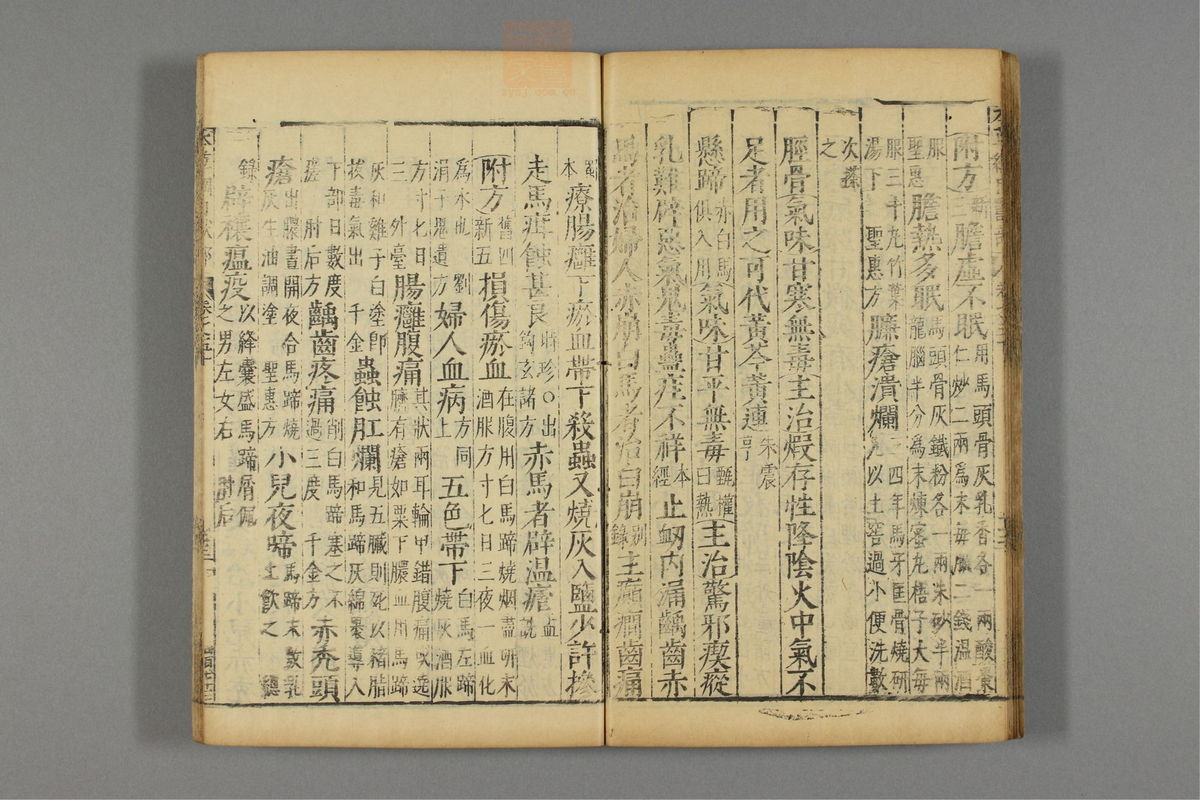 附方 新三 膽虛不眠 用馬頭骨灰乳香各一兩酸棗仁炒二兩為末每服二錢溫酒
服 聖惠 膽熱多眠 馬頭骨灰鐵粉各一兩朱砂半兩龍腦半分為末煉蜜丸梧子大每
服三十丸竹葉湯下 聖惠方 臁瘡潰爛 三四年馬牙匡骨燒研以土窖過小便洗數
次搽之
脛骨 氣味甘寒無毒 主治煅存性降陰火中氣不
足者用之可代黃芩黃連 朱震亨
懸蹄 赤白馬俱入用 氣味甘平無毒 甄權曰熱 主治驚邪瘈瘲
乳難辟惡氣鬼毒蠱疰不祥 本經 止衄內漏齲齒赤
馬者治婦人赤崩白馬者治白崩 別錄 主癲癇齒痛
蜀本 療腸癰下瘀血帶下殺蟲又燒灰入鹽少許摻
走馬疳蝕甚良 時珍○出鉤玄諸方 赤馬者辟溫瘧 孟詵
附方 舊四新五 損傷瘀血 在腹用白馬蹄燒烟盡研末酒服方寸匕日三夜一血化
為水也 劉涓子鬼遺方 婦人血病 方同上 五色帶下 白馬左蹄燒灰酒服
方寸匕日三 外臺 腸癰腹痛 其狀兩耳輪甲錯腹痛或遶臍有瘡如粟下膿血用馬蹄
灰和雞子白塗即拔毒氣出 千金 蟲蝕肛爛 見五臟則死以豬脂和馬蹄灰綿裹導入
下部日數度瘥 肘后方 齲齒疼痛 削白馬蹄塞之不過三度 千金方 赤禿頭
瘡 出膿晝開夜合馬蹄燒灰生油調塗 聖惠方 小兒夜啼 馬蹄末傅乳上飲之 總
錄 辟禳瘟疫 以絳囊盛馬蹄屑佩之男左女右 肘后